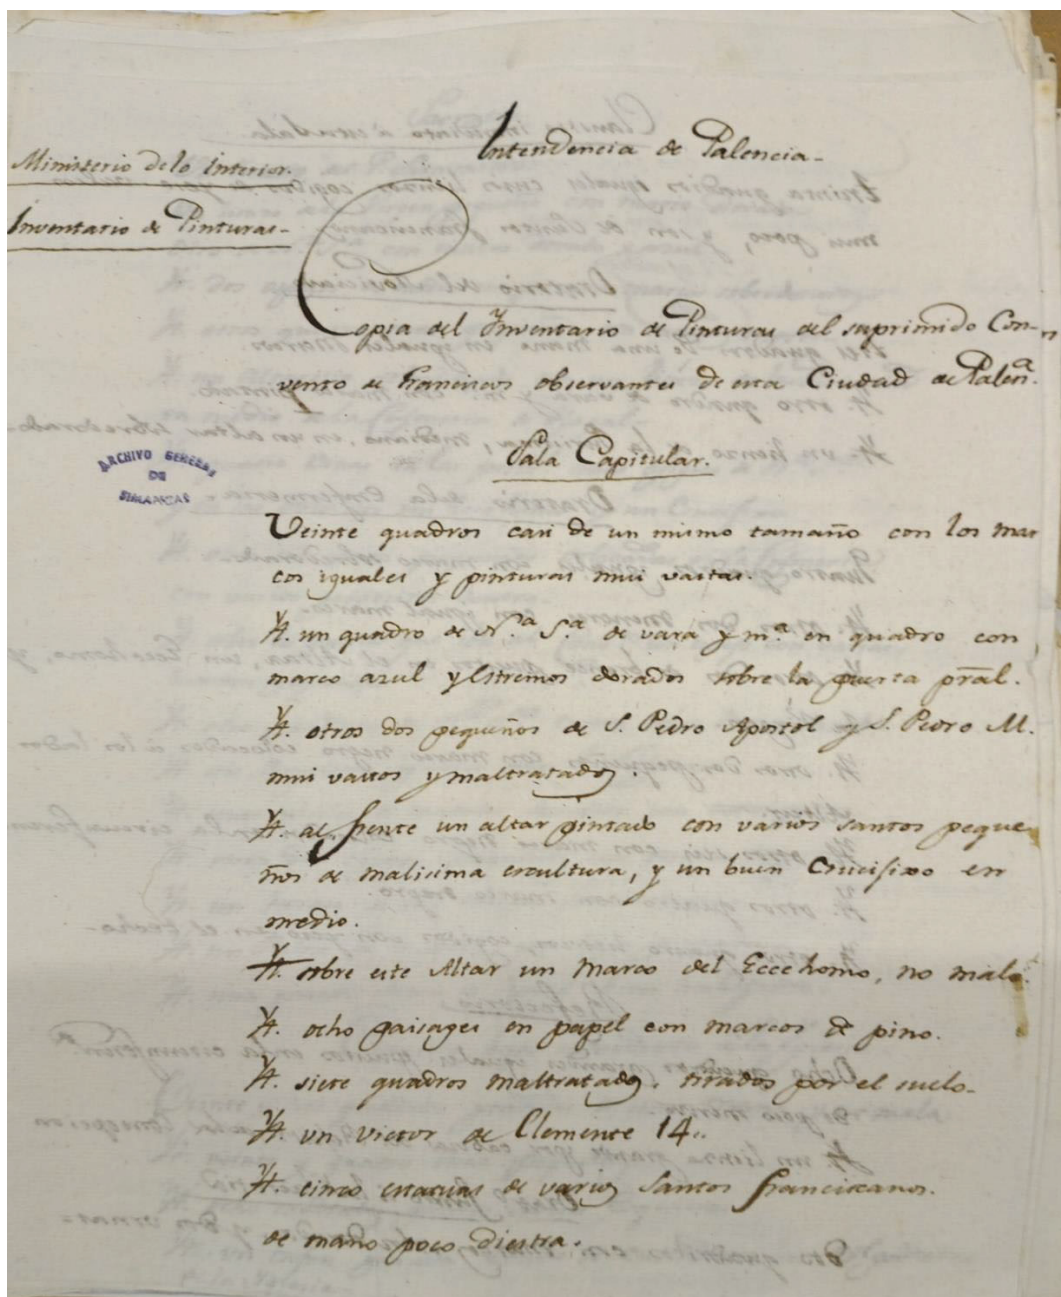 Intendencia de Palencia-
Ministerio de lo Interior.
Inventario de Pinturas-
Copia del Ynventario de Pinturas del suprimido Con-
vento de Franciscos observantes de esta Ciudad de Palena.
Sala Capitular.
ARCHIVO GENERAL
DE
SIMANCAS
Veinte quadros casi de un mismo tamaño con los mar
cos iguales y pinturas mui vastas.
Yt. un quadro de N.a S.a de vara y m.a en quadro con
marco azul y Estremos dorados sobre la puerta pral.
Yt. otros dos pequeños de S. Pedro Apostol y S. Pedro M.
mui vastos y maltratados.
Yt. al frente un altar pintado con varios santos peque
ños de malisima escultura, y un buen Crucifixo en
medio.
Yt. sobre este Altar un Marco del Ecce homo, no malo.
Yt. ocho paisages en papel con marcos de pino.
Yt. siete quadros maltratados. tirados por el suelo-
Yt. un victor de Clemente 14..
Yt. cinco estatuas de varios Santos Franciscanos.
de mano poco diestra.